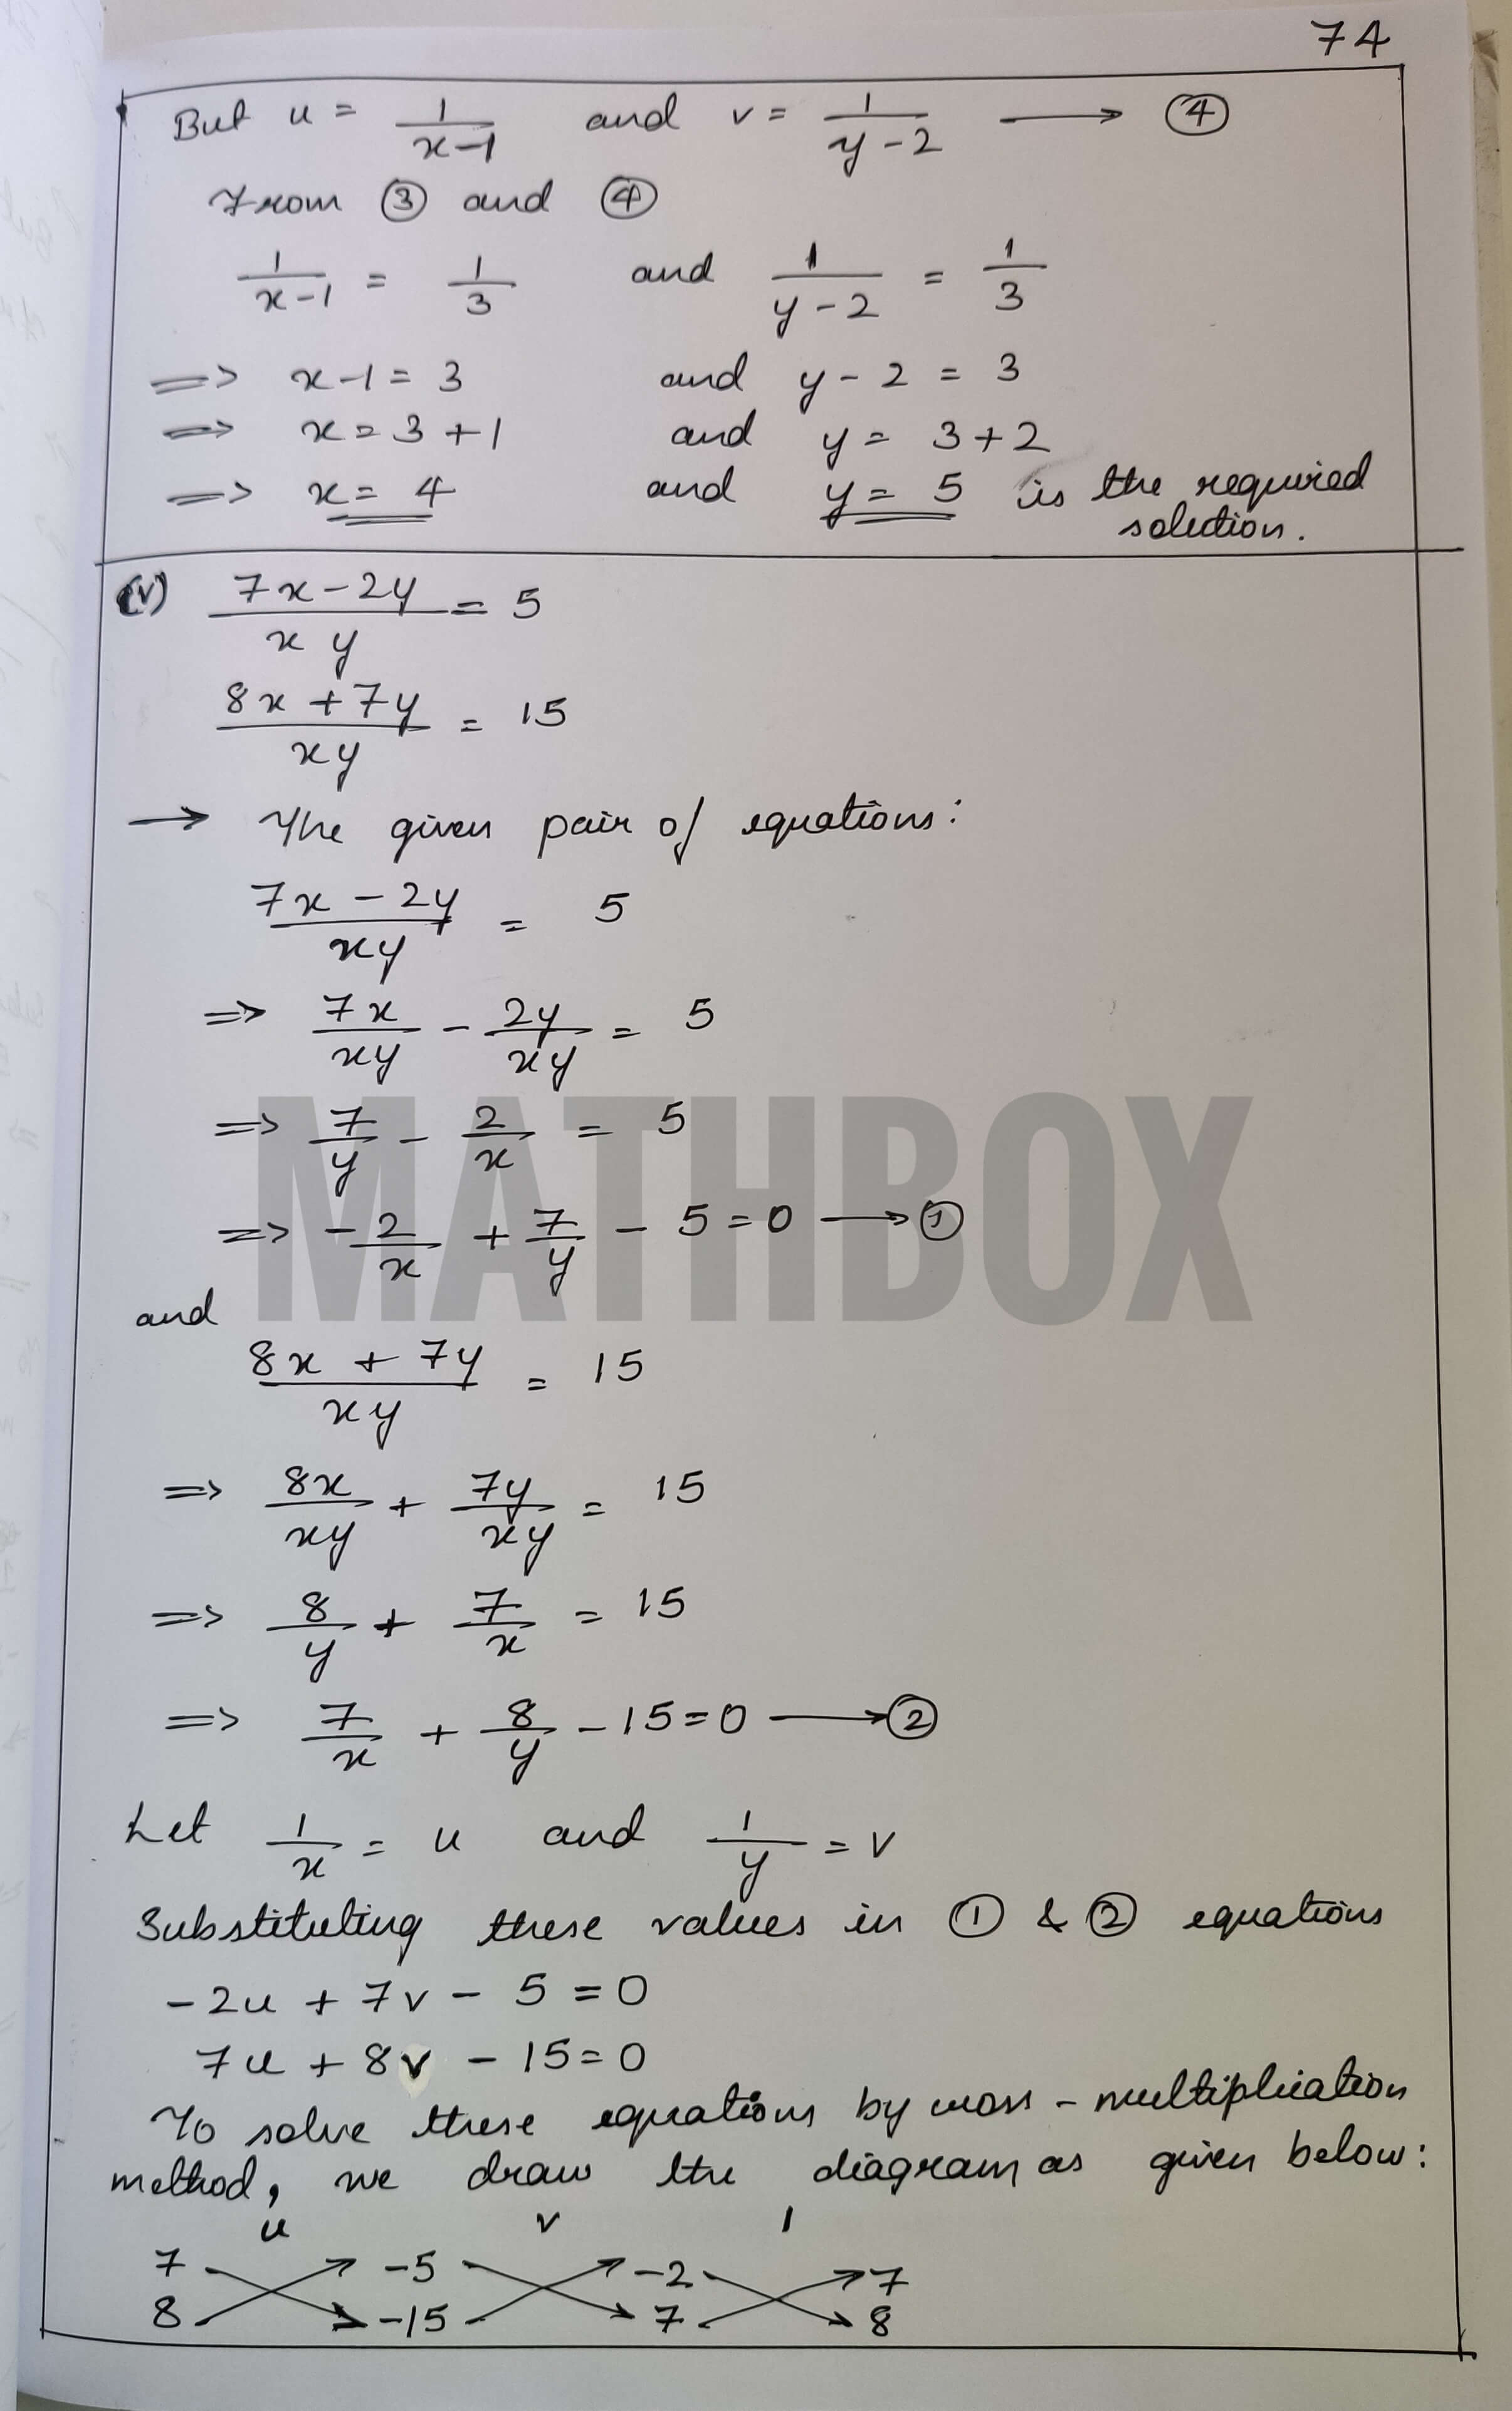 74
But u = 1/(x-1) and v = 1/(y-2) ⟶ ④
From ③ and ④
1/(x-1) = 1/3 and 1/(y-2) = 1/3
=> x-1 = 3 and y-2 = 3
=> x = 3+1 and y = 3+2
=> x = 4 and y = 5 is the required
solution.
(v) (7x-2y)/(xy) = 5
(8x+7y)/(xy) = 15
→ The given pair of equations:
(7x-2y)/(xy) = 5
=> 7x/(xy) - 2y/(xy) = 5
=> 7/y - 2/x = 5
MATHBOX
=> -2/x + 7/y - 5 = 0 ⟶ ①
and
(8x+7y)/(xy) = 15
=> 8x/(xy) + 7y/(xy) = 15
=> 8/y + 7/x = 15
=> 7/x + 8/y - 15 = 0 ⟶ ②
Let 1/x = u and 1/y = v
Substituting these values in ① & ② equations
-2u + 7v - 5 = 0
7u + 8v - 15 = 0
To solve these equations by cross-multiplication
method, we draw the diagram as given below:
u v 1
7 -5 -2 7
8 -15 7 8